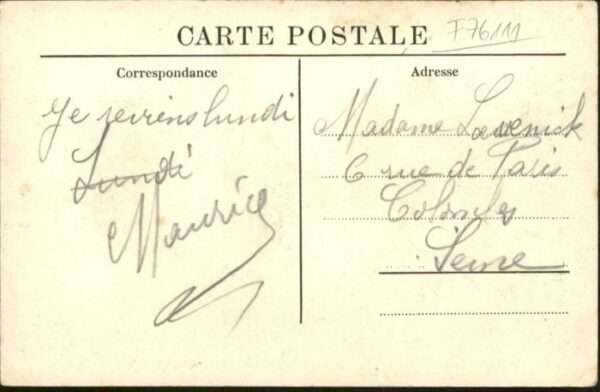 CARTE POSTALE
F76111
Correspondance
Je reviens lundi
Lundi
Maurice
Adresse
Madame Lavenick
6 rue de Paris
Colombes
Seine